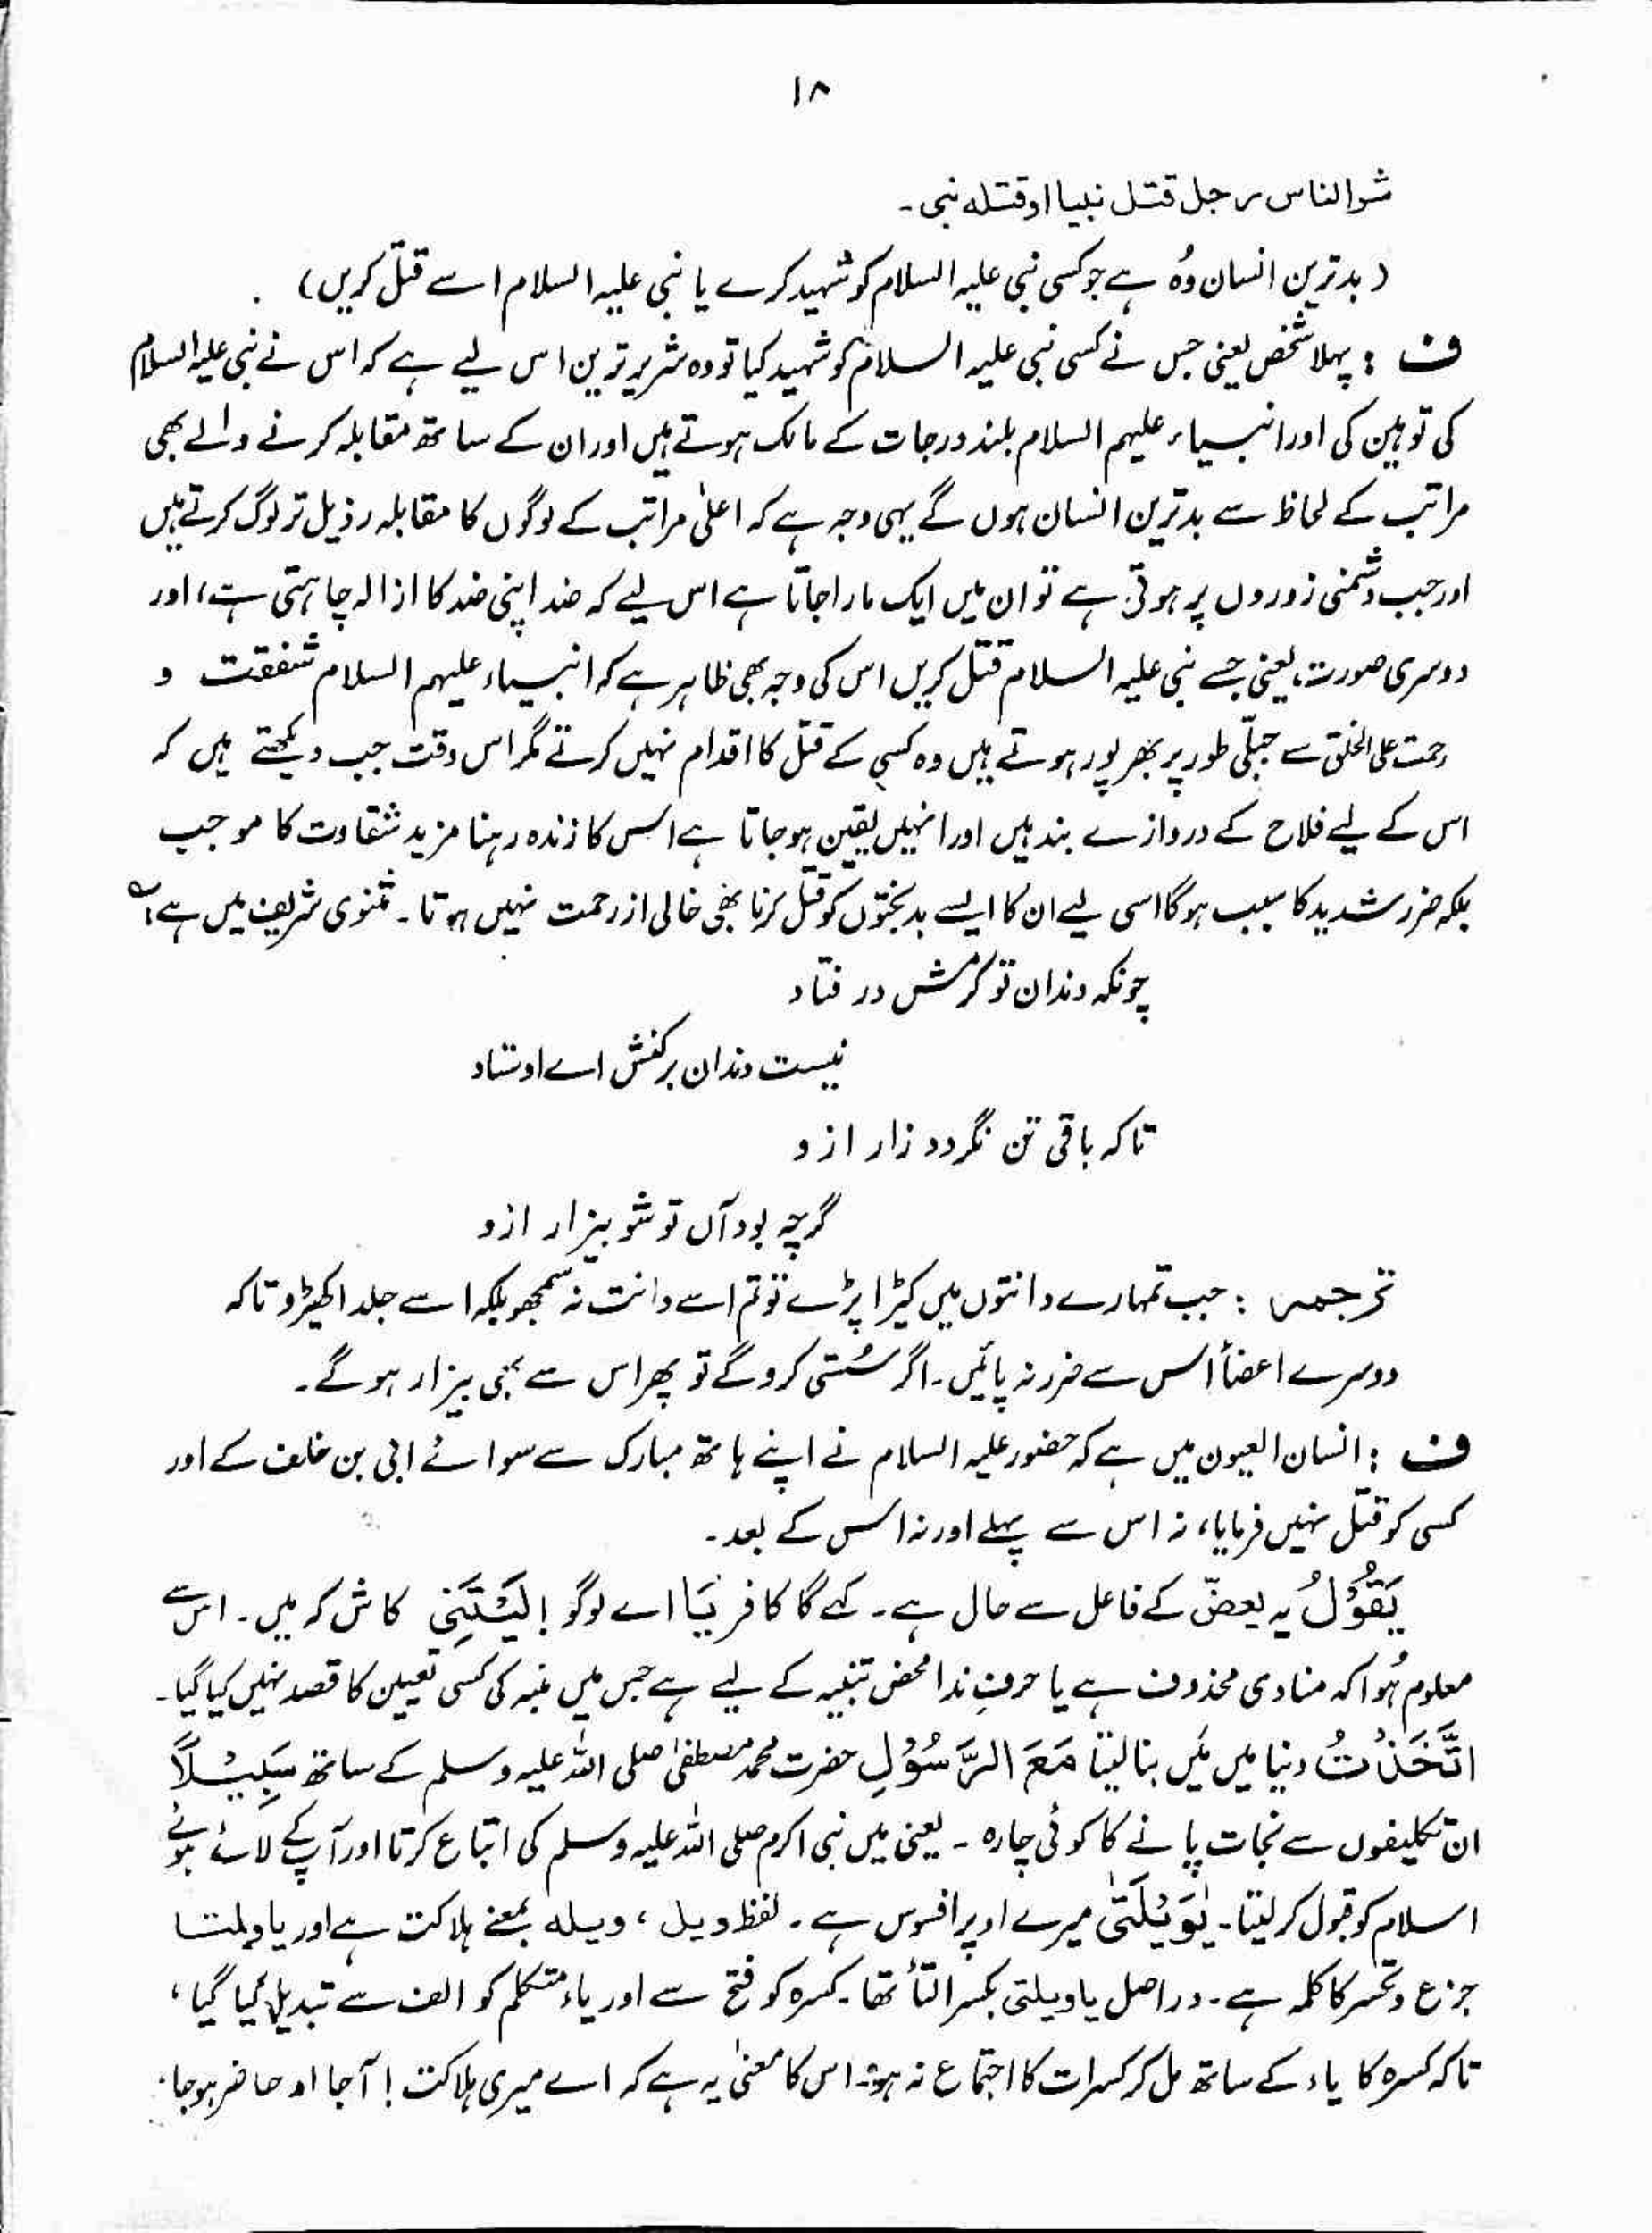 ۱۸
شرالناس رجل قتل نبیا اوقتله نبی۔
( بدترین انسان وُہ ہے جو کسی نبی علیہ السلام کو شہید کرے یا نبی علیہ السلام اسے قتل کریں)
ف : پہلا شخص یعنی جس نے کسی نبی علیہ السلام کو شہید کیا تو وہ شریر ترین اس لیے ہے کہ اس نے نبی علیہ السلام
کی توہین کی اور انبیاء علیہم السلام بلند درجات کے مالک ہوتے ہیں اور ان کے ساتھ مقابلہ کرنے والے بھی
مراتب کے لحاظ سے بدترین انسان ہوں گے یہی وجہ ہے کہ اعلیٰ مراتب کے لوگوں کا مقابلہ رذیل تر لوگ کرتے ہیں
اور جب دشمنی زوروں پر ہوتی ہے تو ان میں ایک مارا جاتا ہے اس لیے کہ ضد اپنی ضد کا ازالہ چاہتی ہے، اور
دوسری صورت، یعنی جسے نبی علیہ السلام قتل کریں اس کی وجہ بھی ظاہر ہے کہ انبیاء علیہم السلام شفقت و
رحمت علی الخلق سے جبلّی طور پر بھرپور ہوتے ہیں وہ کسی کے قتل کا اقدام نہیں کرتے مگر اس وقت جب دیکھتے ہیں کہ
اس کے لیے فلاح کے دروازے بند ہیں اور انہیں یقین ہوجاتا ہے اس کا زندہ رہنا مزید شقاوت کا موجب
بلکہ ضرر شدید کا سبب ہوگا اسی لیے ان کا ایسے بدبختوں کو قتل کرنا بھی خالی از رحمت نہیں ہوتا۔ مثنوی شریف میں ہے؎
چونکہ دندان تو کرمش در فتاد
نیست دندان برکنش اے اوستاد
تاکہ باقی تن نگردد زار ازو
گرچہ بود آں تو شو بیزار ازو
ترجمہ : جب تمہارے دانتوں میں کیڑا پڑے تو تم اسے دانت نہ سمجھو بلکہ اسے جلد اکھیڑو تاکہ
دوسرے اعضأ اس سے ضرر نہ پائیں۔ اگر سُستی کروگے تو پھر اس سے بھی بیزار ہوگے۔
ف : انسان العیون میں ہے کہ حضور علیہ السلام نے اپنے ہاتھ مبارک سے سوائے ابی بن خلف کے اور
کسی کو قتل نہیں فرمایا، نہ اس سے پہلے اور نہ اس کے بعد۔
یَقُوْلُ یہ یعضّ کے فاعل سے حال ہے۔ کہے گا کافر یَا اے لوگو ! لَیْتَنِی کاش کہ میں۔ اس سے
معلوم ہُوا کہ منادی محذوف ہے یا حرفِ ندا محض تنبیہ کے لیے ہے جس میں منبہ کی کسی تعیین کا قصد نہیں کیا گیا۔
اتَّخَذْتُ دنیا میں مَیں بنا لیتا مَعَ الرَّسُوْلِ حضرت محمد مصطفیٰ صلی اللہ علیہ وسلم کے ساتھ سَبِیْلًا
ان تکلیفوں سے نجات پانے کا کوئی چارہ ۔ یعنی میں نبی اکرم صلی اللہ علیہ وسلم کی اتباع کرتا اور آپ کے لائے ہوئے
اسلام کو قبول کرلیتا۔ یٰوَیْلَتٰی میرے اوپر افسوس ہے ۔ لفظ ویل ، ویلہ بمعنے ہلاکت ہے اور یا ویلتا
جزع وتحسر کا کلمہ ہے۔ دراصل یاویلتی بکسر التأ تھا۔ کسرہ کو فتح سے اور یاء متکلم کو الف سے تبدیل کیا گیا ،
تاکہ کسرہ کا یاء کے ساتھ مل کر کسرات کا اجتماع نہ ہو۔ اس کا معنیٰ یہ ہے کہ اے میری ہلاکت ! آجا او حاضر ہوجا۔